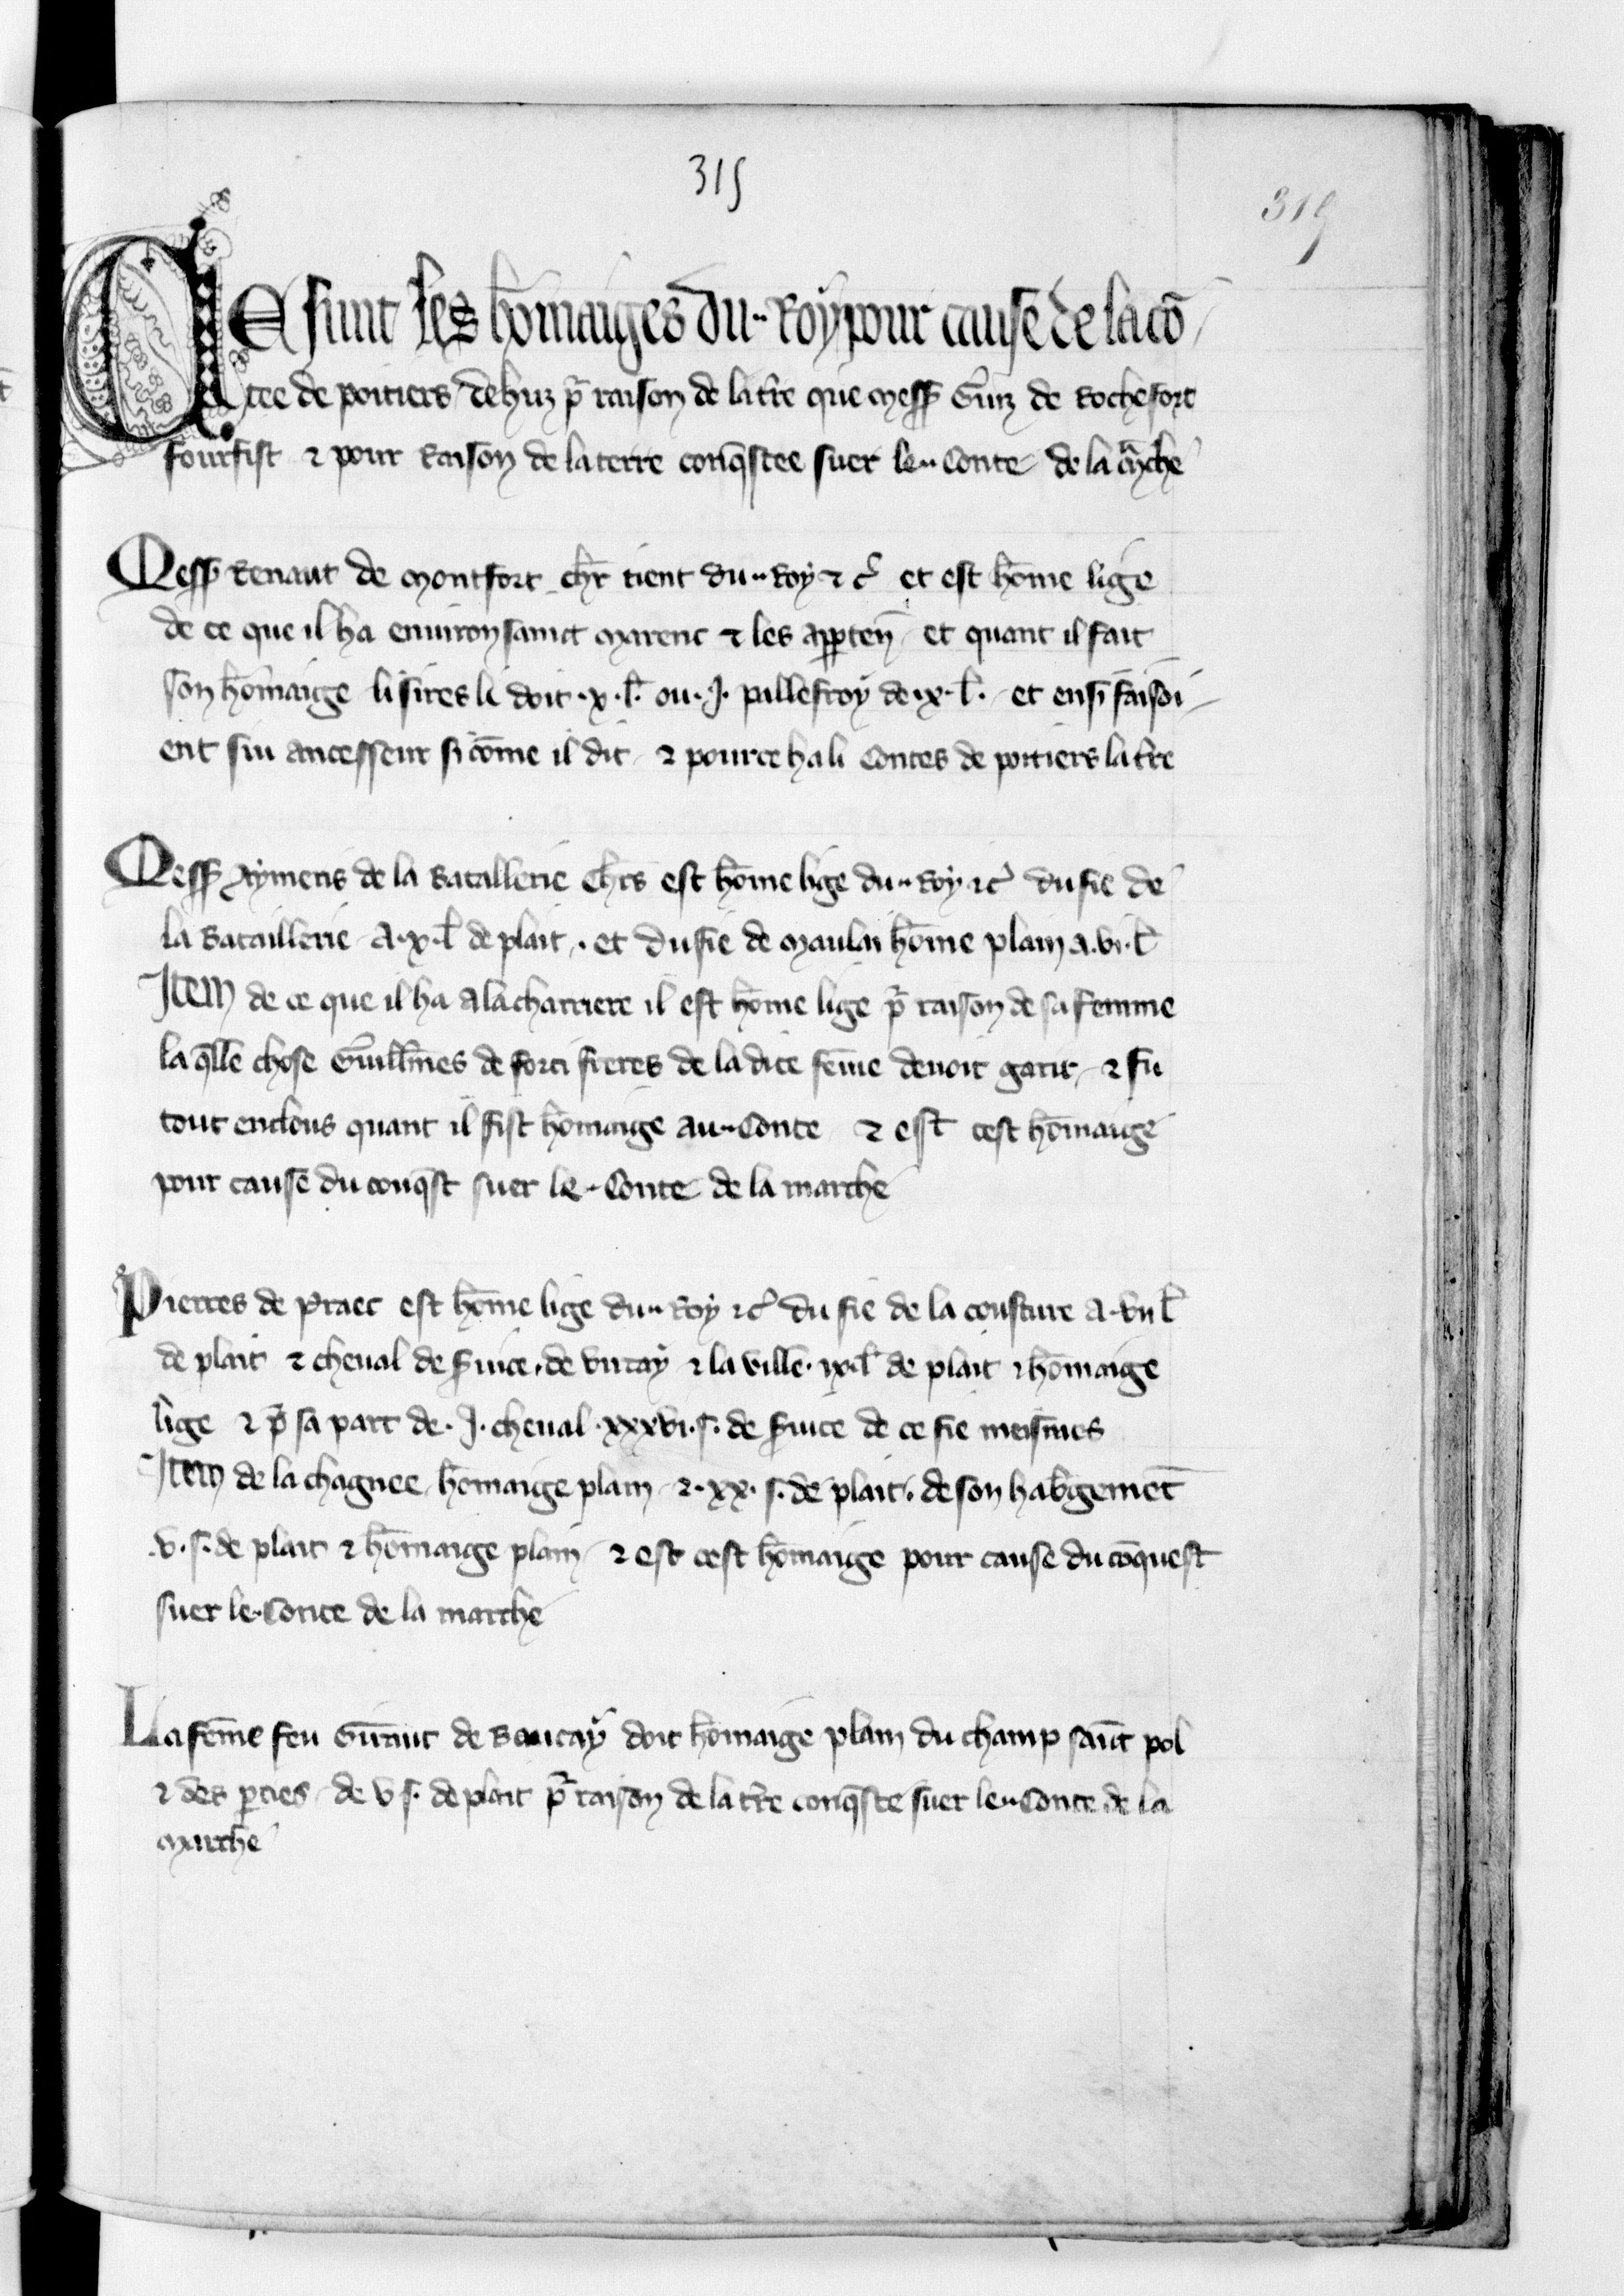 315
315
CE sunt les hōmaiges du·· Roy pour cause de la cō
tee de poitiers dehuz pͬ raison de la tͬre que mess̄ Guiz de Rochefort
fourfist ⁊ pour Raison de la terre conq̄stee suer le·· Conte de la mͣrche
Mess̄ Renaut de Montfort chr̄ tient du·· Roy ⁊ cͣ et est hōme lige
de ce que il ha environ sainct Marenc ⁊ les apparten̄ et quant il fait
son hōmaige li sires li doit ·x· l̄· ou ·J· pallefroy de ·x· l̄· et ensi faisoi
ent siu ancesseur si cōme il dit ⁊ pource ha li Contes de poitiers la tr̄e
Mess̄ Aymeris de la Ratallerie chr̄s est hōme lige du·· Roy ⁊ cͣ du fie de
la Rataillerie A ·x· l̄ de plait · et du fie de Maulai hōme plain a ·vi· l̄
Item de ce que il ha a la charriere il est hōme lige pͬ raison de sa femme
la q̄lle chose Guill̄mes de forti freres de la dite fēme devoit garir ⁊ fu
tout enclous quant il fist hōmaige au·· Conte ⁊ est cest hōmaige
pour cause du conq̄st suer le·· Conte de la marche
Pierres de Praec est hōme lige du·· Roy ⁊ cͣ du fie de la cousture A ·vii l̄
de plait ⁊ cheval de s̄vice · de vutay ⁊ la ville · ix· l̄ de plait ⁊ hōmaige
lige ⁊ pͬ sa part de ·J· cheval ·xxxvi· s· de s̄vice de ce fie meismes
Item de la chagnee hōmaige plain ⁊ ·xx· s· de plait · de son hab̄gemēt
·v· s· de plait ⁊ hōmaige plain ⁊ est cest hōmaige pour cause du cōquest
suer le· Conte de la marche
La fēme feu Giraut de Saucay doit hōmaige plain du champ sāit pol
⁊ des p̄ties de v s· de plait pͬ raison de la tr̄e conq̄ste suer le·· Conte de la
Marche